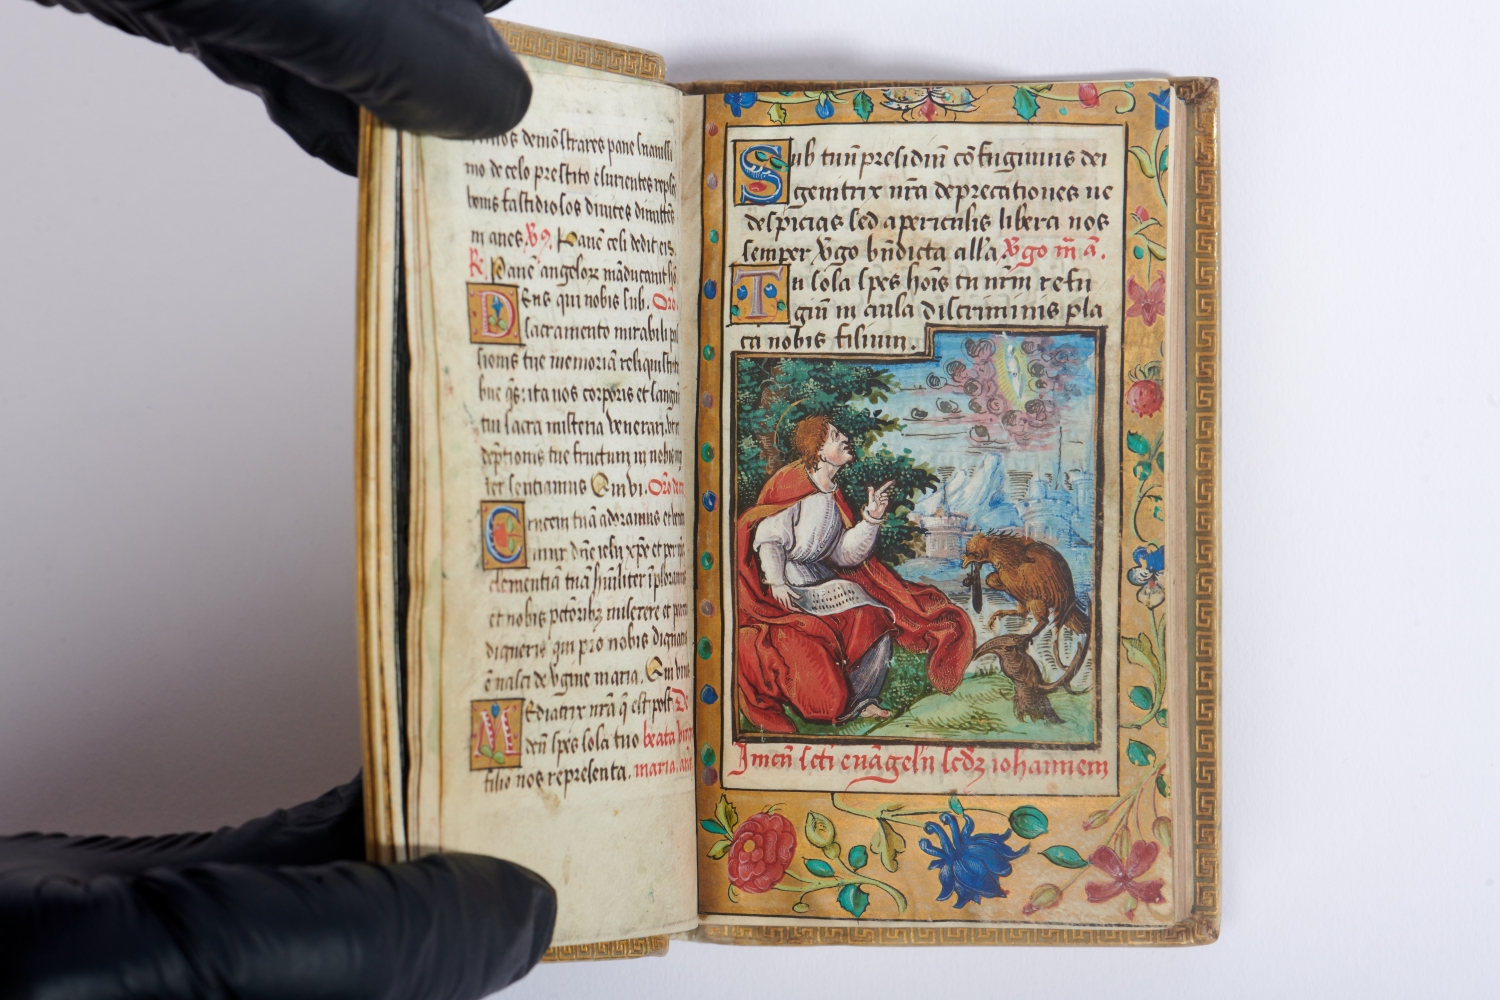 demõstrares pane suavissi
mo de celo prestito esurientes reples
bonis fastidiosos divites dimittẽs
in anes. V9. Panẽ celi dedit eis
R. Panẽ angelorꝝ mãducavit hõ
Deus qui nobis sub. Oro
sacramento mirabili pas
sionis tue memoriã reliquisti
bue q̃s: ita nos corporis et sangui
tui sacra misteria venerari. ut
dẽptionis tue fructum in nobis
ter sentiamus Qui vi. Oro
Crucem tuã adoramus et
mur dñe iesu xp̃e et per
clementiã tuã hũiliter ĩploramus
et nobis petõribꝫ miserere et
digneris qui pro nobis dignatus
ẽ nasci de vgine maria. Qui
Mediatrix nr̃a q̃ est post De
deũ spes sola tuo beata
filio nos representa. maria.
Sub tuũ presidiũ cõfugimus dei
genitrix nr̃a deprecationes ne
despicias sed a periculis libera nos
semper v̾go bñdicta all'a v̾go m̃ ã.
Tu sola spes hoĩs tu nr̃m refu
giũ in cuisla discriminis pla
ca nobis filium.
Inicĩu scti euãgelii scdꝫ iohannem